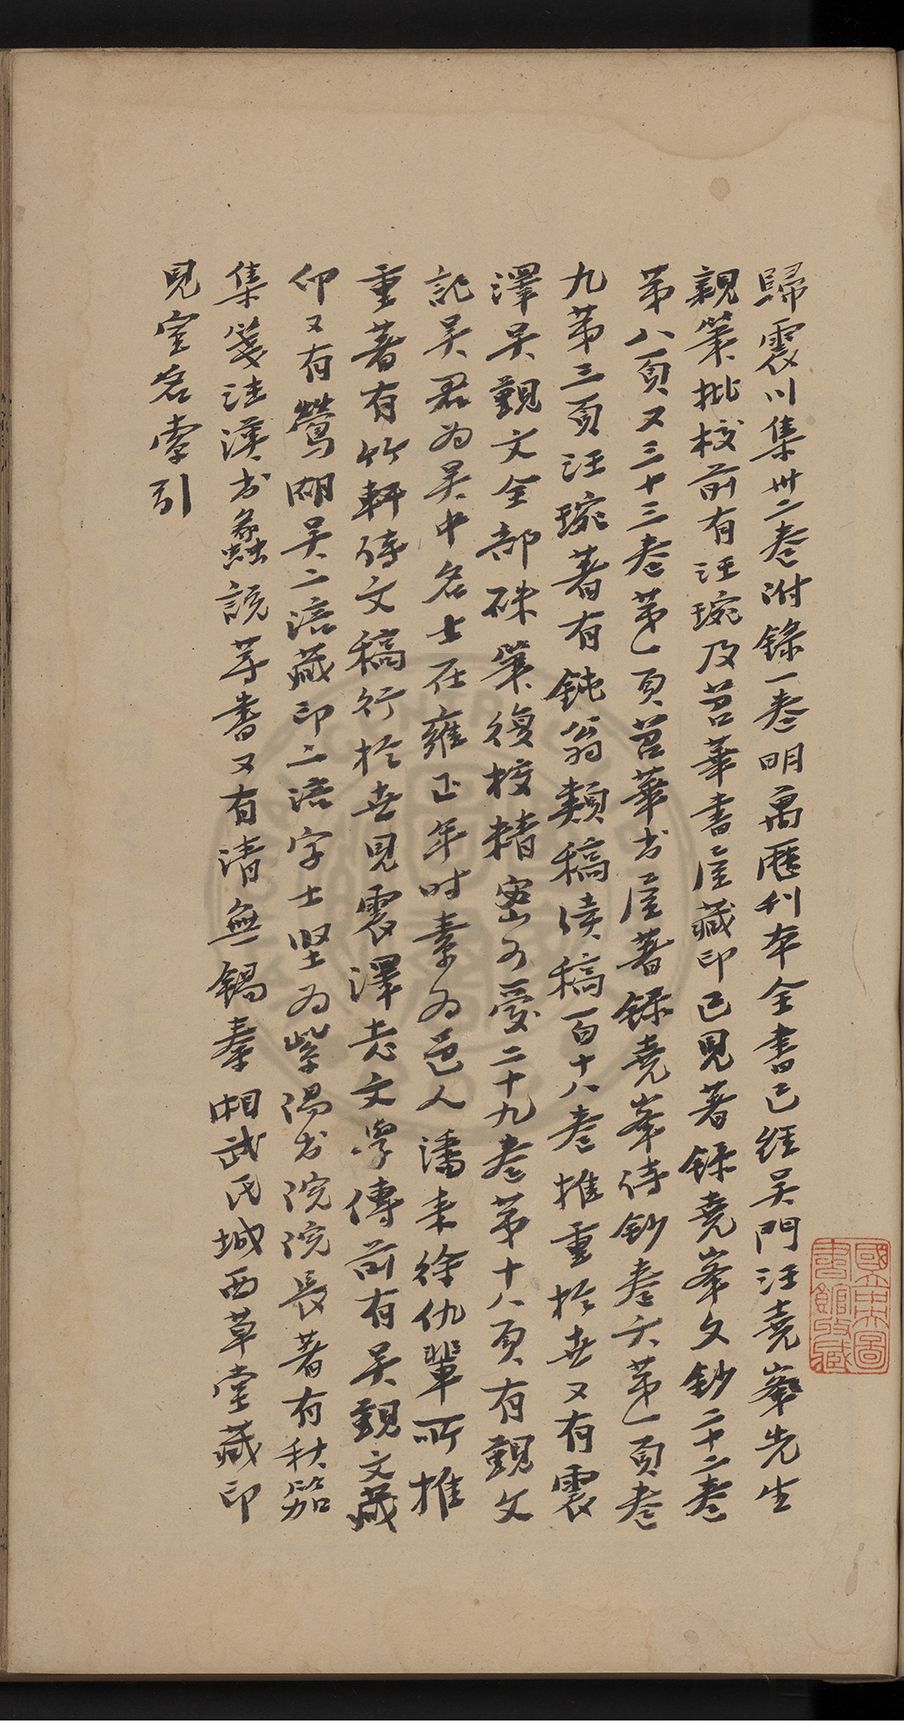 歸震川集卅二卷附錄一卷明萬曆刊本全書已經吳門汪堯峯先生
親筆批校前有汪琬及苕華書屋藏印已見著錄堯峯文鈔二十二卷
第八頁又三十三卷第一頁苕華书屋著錄堯峯诗鈔卷六第一頁卷
九第三頁汪琬著有鈍翁類稿续稿百十八卷推重於世又有震
澤吳觀文全部硃筆復校精密可愛二十九卷第十八頁有觀文
記吳君为吳中名士在雍正年时素为邑人潘耒徐仇輩所推
重著有竹軒诗文稿行於世見震澤志文學傳前有吳觀文藏
印又有鶯湖吳二涪藏印二涪字士堅为紫陽书院院長著有秋笳
集箋注漢书蠡說等書又有清無錫秦相武氏城西草堂藏印
見室名索引
國立中央圖書館收藏